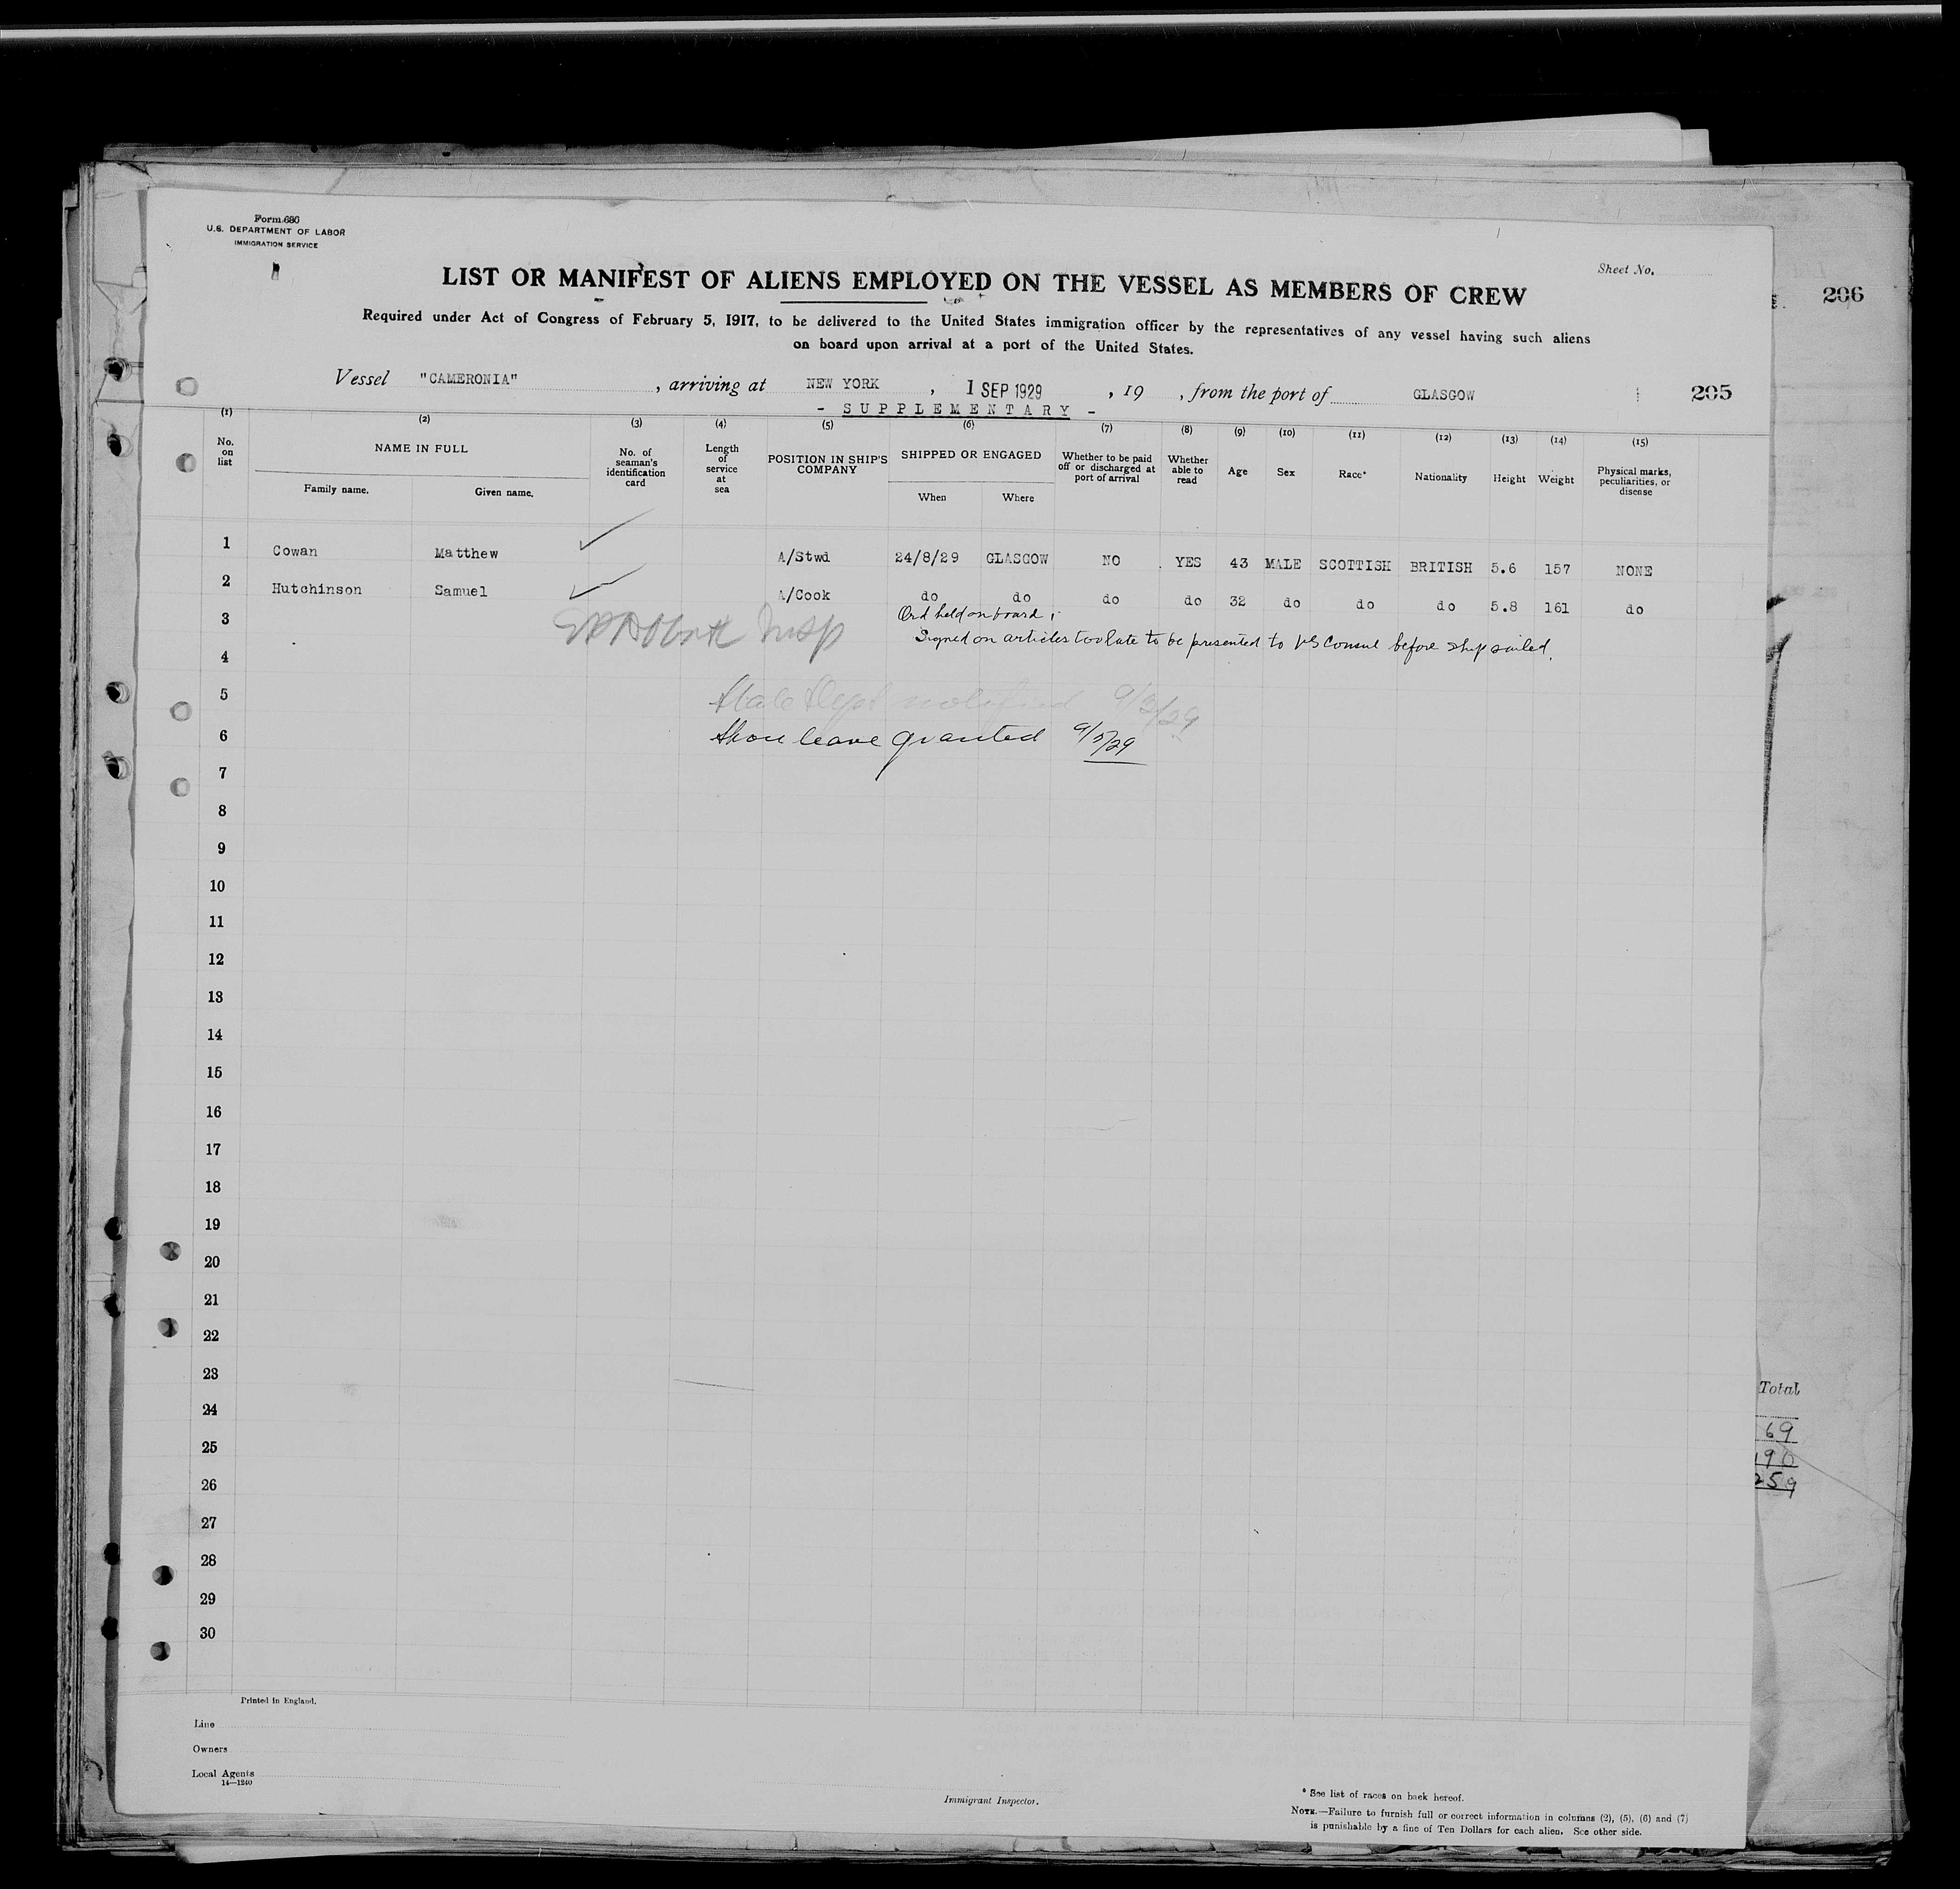 Form 686
U.S. DEPARTMENT OF LABOR
IMMIGRATION SERVICE
Sheet No.
LIST OR MANIFEST OF ALIENS EMPLOYED ON THE VESSEL AS MEMBERS OF CREW
206
Required under Act of Congress of February 5, 1917, to be delivered to the United States immigration officer by the representatives of any vessel having such aliens
on board upon arrival at a port of the United States.
Vessel "CAMERONIA" , arriving at NEW YORK , 1 SEP 1929 , 19 , from the port of GLASGOW 205
- SUPPLEMENTARY -
(1) (2) (3) (4) (5) (6) (7) (8) (9) (10) (11) (12) (13) (14) (15)
No. on list NAME IN FULL Family name. Given name. No. of seaman's identification card Length of service at sea POSITION IN SHIP'S COMPANY SHIPPED OR ENGAGED When Where Whether to be paid off or discharged at port of arrival Whether able to read Age Sex Race* Nationality Height Weight Physical marks, peculiarities, or disease
1 Cowan Matthew A/Stwd 24/8/29 GLASGOW NO YES 43 MALE SCOTTISH BRITISH 5.6 157 NONE
2 Hutchinson Samuel A/Cook do do do do 32 do do do 5.8 161 do
3 Insp Ord held on board
Signed on articles too late to be presented to US Consul before ship sailed.
4
5 State Dept notified 9/3/29
6 Shore leave granted
7
8
9
10
11
12
13
14
15
16
17
18
19
20
21
22
23
24
25
26
27
28
29
30
Total
69
190
259
Printed in England.
Line
Owners
Local Agents
14—1240
Immigrant Inspector.
* See list of races on back hereof.
NOTE.—Failure to furnish full or correct information in columns (2), (5), (6) and (7)
is punishable by a fine of Ten Dollars for each alien. See other side.